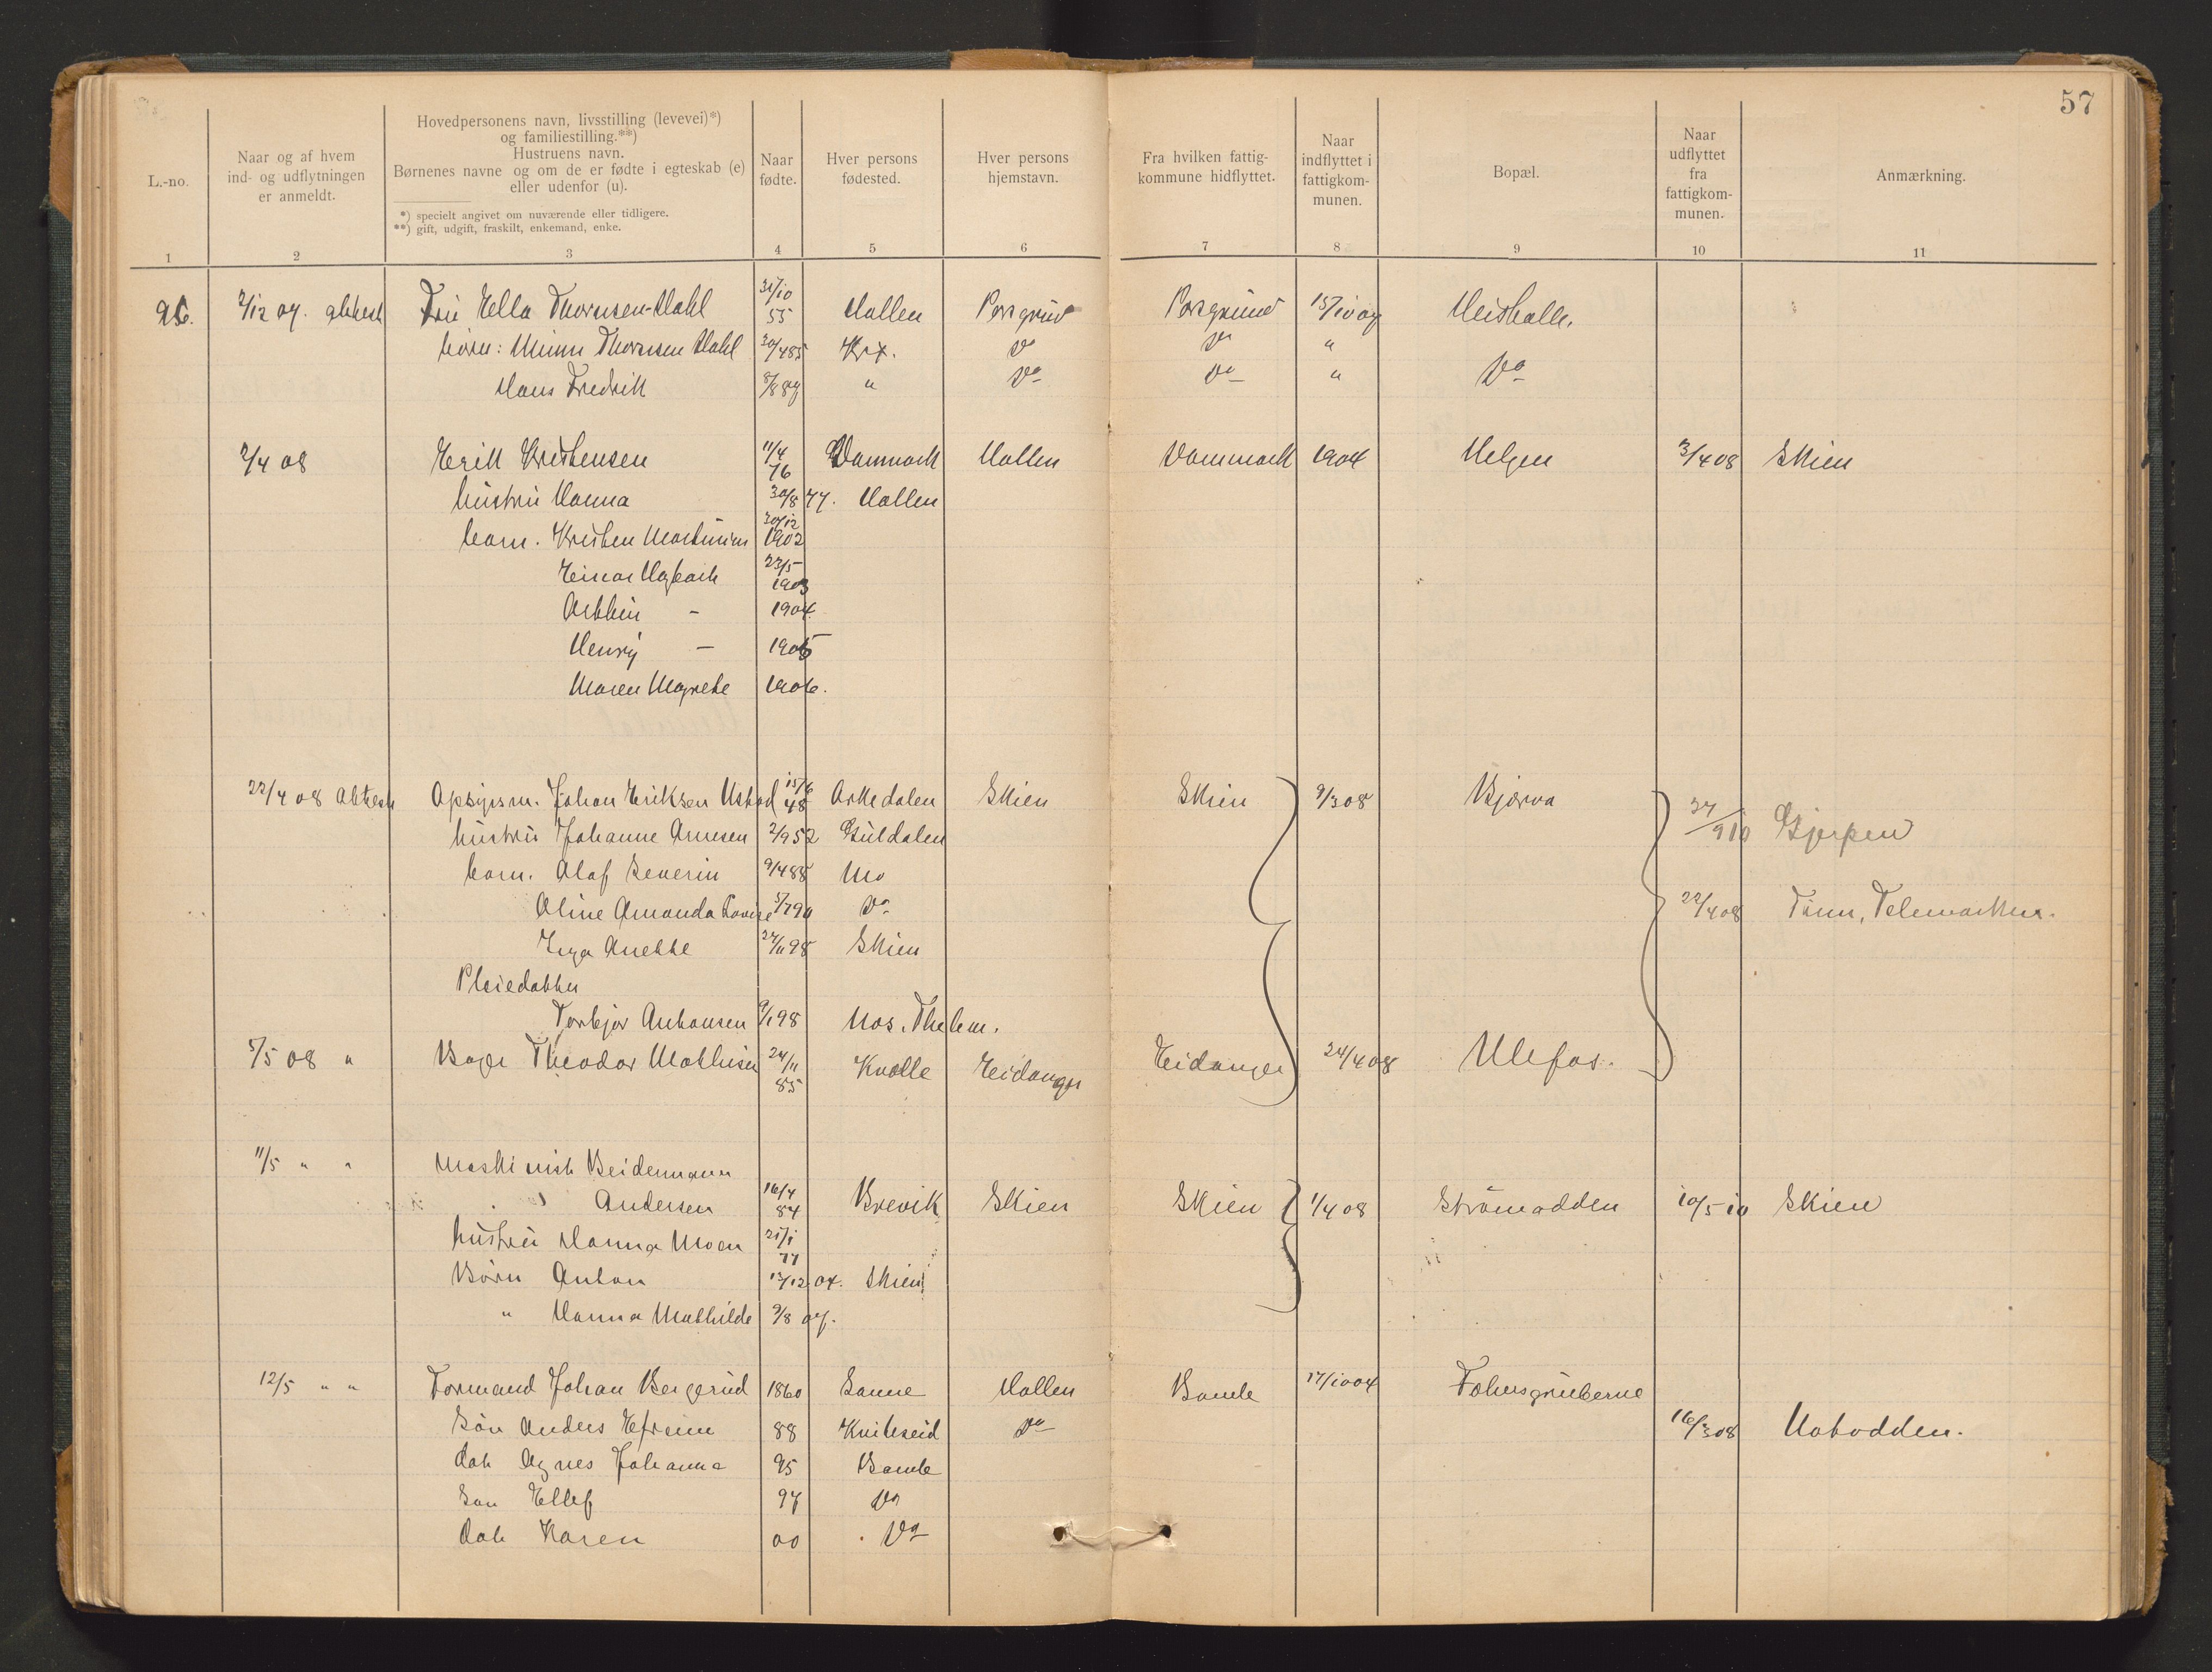 57
L.-no.
Naar og af hvem
ind- og udflytningen
er anmeldt.
Hovedpersonens navn, livsstilling (levevei)*)
og familiestilling.**)
Hustruens navn.
Børnenes navne og om de er fødte i egteskab (e)
eller udenfor (u).
*) specielt angivet om nuværende eller tidligere.
**) gift, udgift, fraskilt, enkemand, enke.
Naar
fødte.
Hver persons
fødested.
Hver persons
hjemstavn.
Fra hvilken fattig-
kommune hidflyttet.
Naar
indflyttet i
fattigkom-
munen.
Bopæl.
Naar
udflyttet
fra
fattigkom-
munen.
Anmærkning.
1 2 3 4 5 6 7 8 9 10 11
96. 2/12 07. attest Fru Ella Thornsen-Dahl 31/10 55 Hollen Porsgrund Porsgrund 15/10 07
børn: Thornsen Dahl 30/4 85 Krx. Do Do "
Hans Fredrik 8/8 89 " Do Do " Do
2/4 08 Erik Kristensen 11/4 76 Danmark Hollen Danmark 1904 Helgen 3/4 08 Skien
hustru Hanna 30/8 77. Hollen
barn. Kristen Martinius 30/12 1902
Einar 23/5 1903
– 1904
Henry – 1905
Maren Magrete 1906.
22/4 08 Attest Opsynsm. Johan Eriksen 15/6 48 Skien Skien 9/3 08 Bjørva 27/9 10 Gjerpen
hustru Johanne Arnesen 2/9 52 Guldalen
barn. Olaf Severin 9/4 88 Mo
Oline Amanda Lovise 5/7 90 Do 22/4 08 Tinn, Telemarken.
Inga Anette 27/11 98 Skien
Pleiedatter
Torbjør Antonsen 9/1 98 Mos. Thelem.
5/5 08 " Bager Theodor Mathisen 24/11 85 Eidanger Eidanger 24/4 08 Ulefos.
11/5 " " Maskinist Beidermann
" Andersen 16/4 84 Brevik Skien Skien 1/4 08 Strömodden 10/5 10 Skien
hustru Hanna Moen 21/1 77
Börn Anton 13/12 04. Skien
" Hanna Mathilde 9/8 07.
12/5 " " Formand Johan Bergerud 1860 Sanne Hollen Bamle 17/10 04
Sön Anders Efreim 88 Kviteseid Do 16/3 08 Notodden.
dat Agnes Johanna 95 Bamle
Sön Ellef 97 Do
dat Karen 00 Do